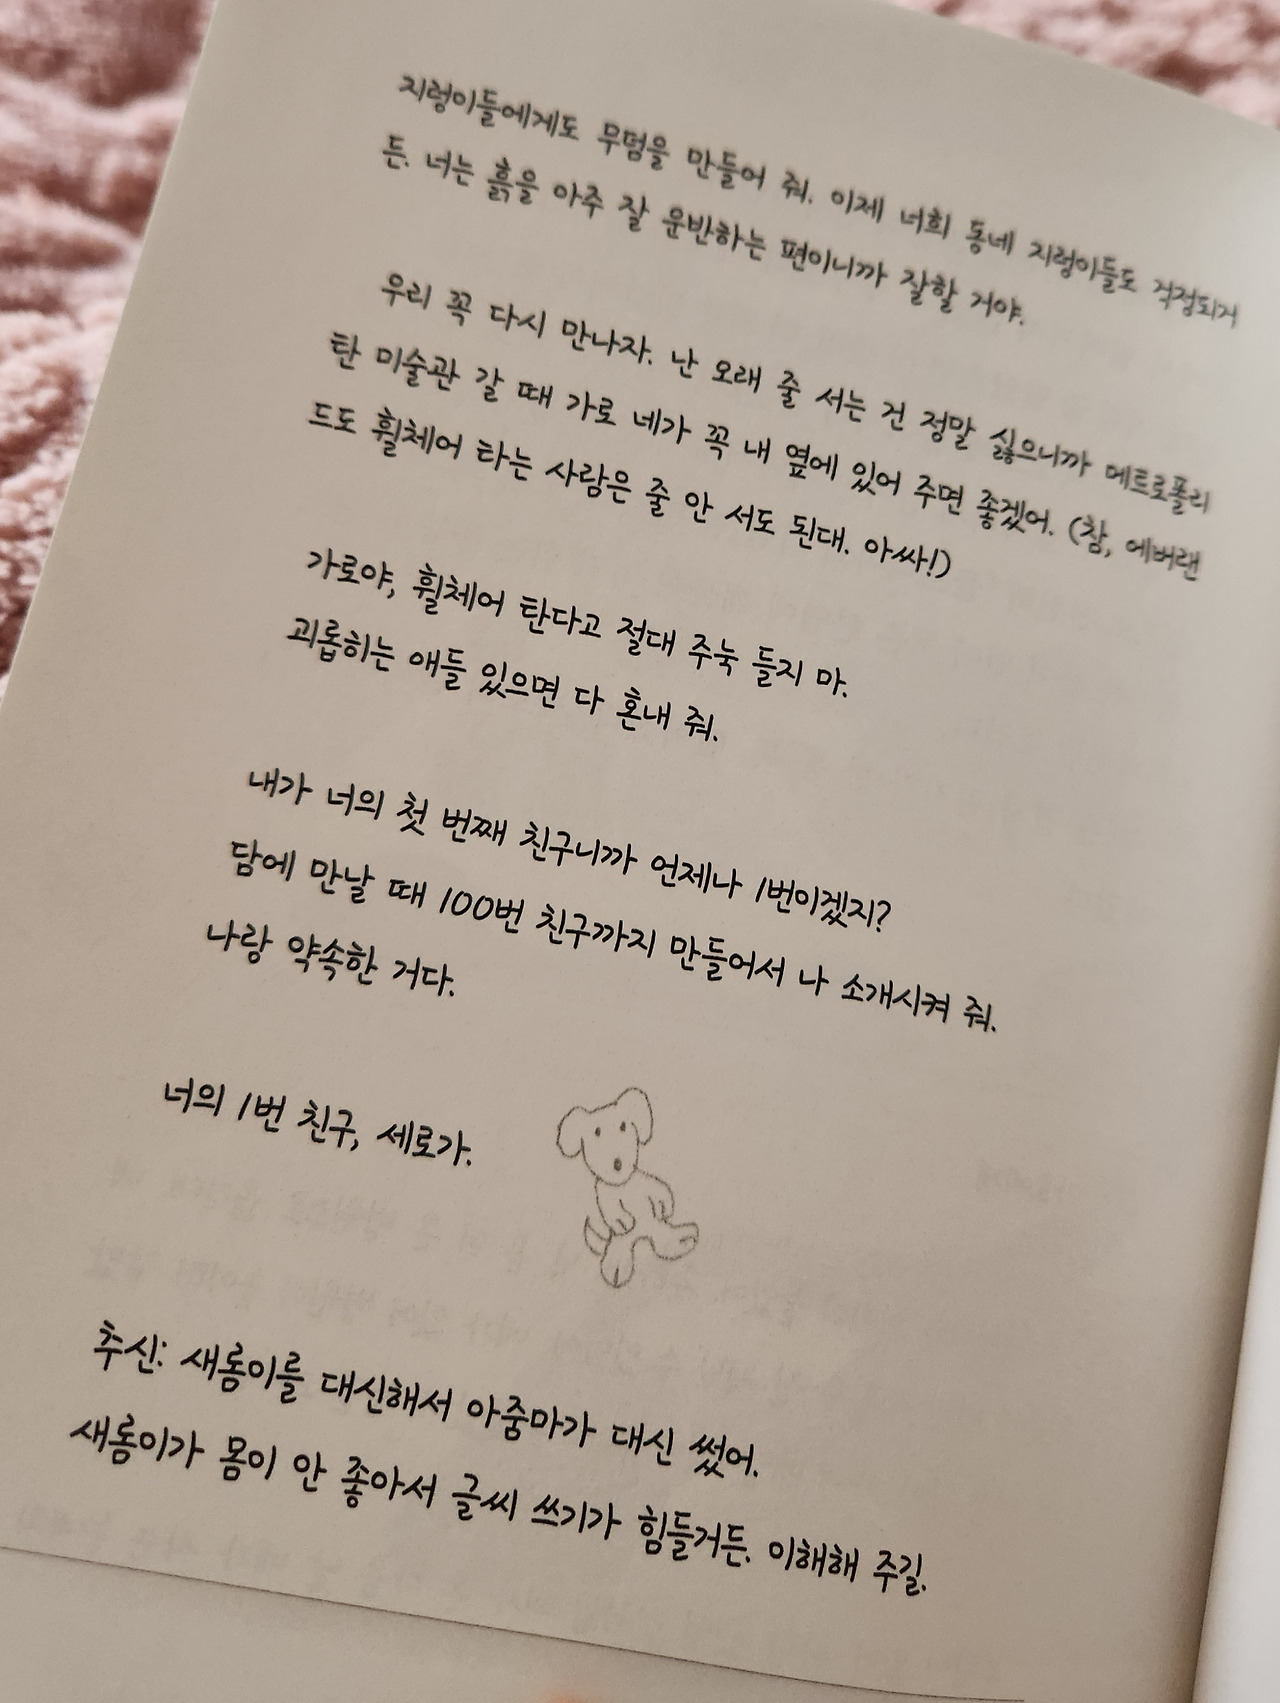 지렁이들에게도 무덤을 만들어 줘. 이제 너희 동네 지렁이들도 걱정되거
든. 너는 흙을 아주 잘 운반하는 편이니까 잘할 거야.
우리 꼭 다시 만나자. 난 오래 줄 서는 건 정말 싫으니까 메트로폴리
탄 미술관 갈 때 가로 네가 꼭 내 옆에 있어 주면 좋겠어. (참, 에버랜
드도 휠체어 타는 사람은 줄 안 서도 된대. 아싸!)
가로야, 휠체어 탄다고 절대 주눅 들지 마.
괴롭히는 애들 있으면 다 혼내 줘.
내가 너의 첫 번째 친구니까 언제나 1번이겠지?
담에 만날 때 100번 친구까지 만들어서 나 소개시켜 줘.
나랑 약속한 거다.
너의 1번 친구, 세로가.
추신: 새롬이를 대신해서 아줌마가 대신 썼어.
새롬이가 몸이 안 좋아서 글씨 쓰기가 힘들거든. 이해해 주길.